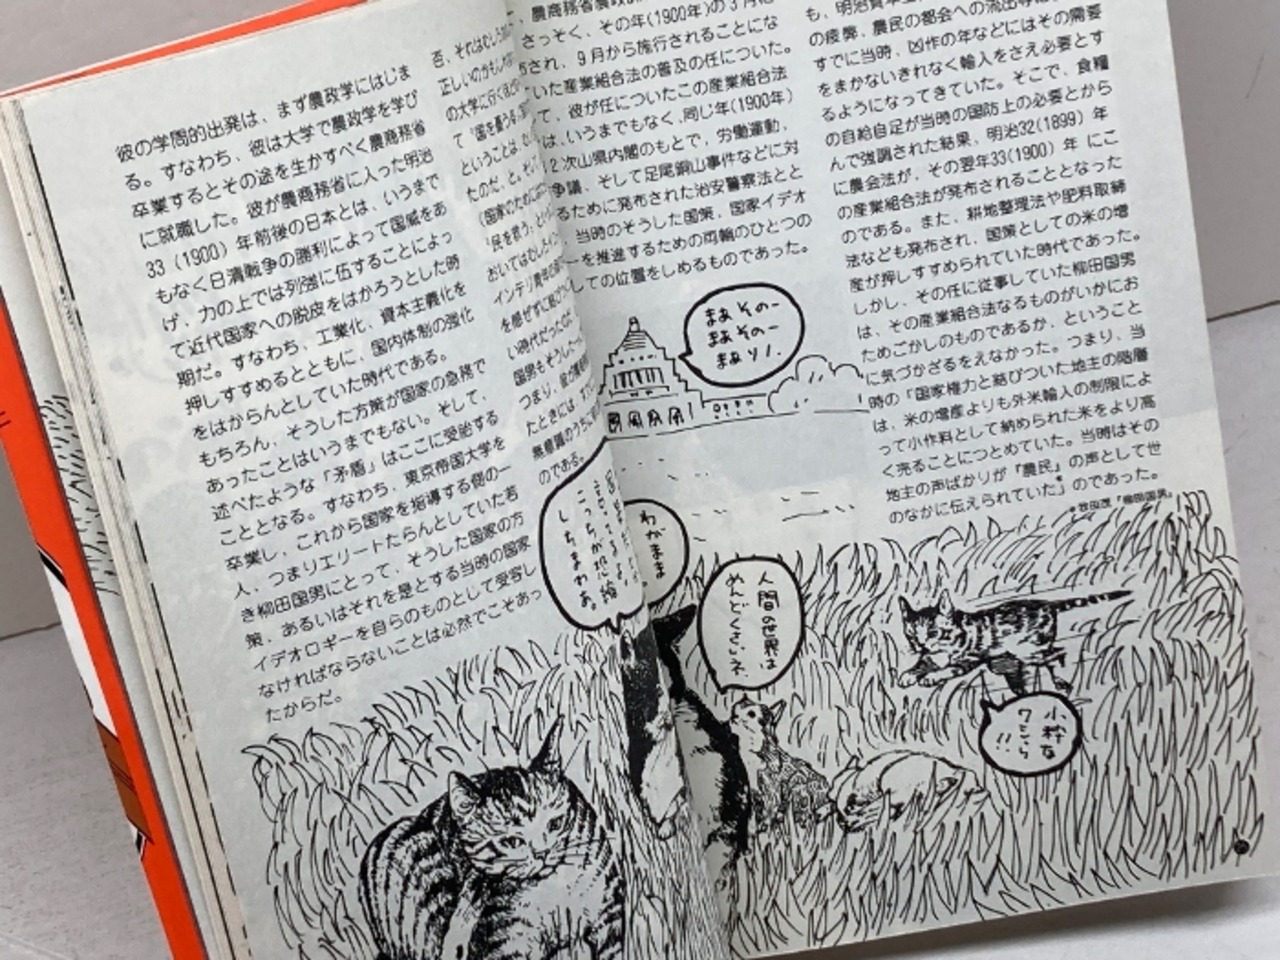 彼の学問的出発は、まず農政学にはじま
る。すなわち、彼は大学で農政学を学び
卒業するとその途を生かすべく農商務省
に就職した。彼が農商務省に入った明治
33（1900）年前後の日本とは、いうまで
もなく日清戦争の勝利によって国威をあ
げ、力の上では列強に伍することによっ
て近代国家への脱皮をはかろうとした時
期だ。すなわち、工業化、資本主義化を
押しすすめるとともに、国内体制の強化
をはからんとしていた時代である。
もちろん、そうした方策が国家の急務で
あったことはいうまでもない。そして、
述べたような「矛盾」はここに受胎する
こととなる。すなわち、東京帝国大学を
卒業し、これから国家を指導する側の一
人、つまりエリートたらんとしていた若
き柳田国男にとって、そうした国家の方
策、あるいはそれを是とする当時の国家
イデオロギーを自らのものとして受容し
なければならないことは必然でこそあっ
たからだ。
否、それはむしろ
正しいのかもしれ
の大学に行くほどの
て「国を憂う
ということは、
たのだ、と。
「国家のために
「民を救う」
おいてはむしろ
インテリ青年の
を感ぜずに
い時代だったの
国男もそうした
つまり、彼の
たときには、
無意識のうちに
のである。
農商務省農政
さっそく、その年(1900年)の3月に
布され、9月から施行されることにな
いた産業組合法の普及の任についた。
て、彼が任についたこの産業組合法
は、いうまでもなく、同じ年(1900年)
2次山県内閣のもとで、労働運動、
争議、そして足尾銅山事件などに対
るために発布された治安警察法とと
、当時のそうした国策、国家イデオ
ーを推進するための両輪のひとつの
しての位置をしめるものであった。
も、明治資本主
の疲弊、農民の都会への流出
すでに当時、凶作の年などにはその需要
をまかないきれなく輸入をさえ必要とす
るようになってきていた。そこで、食糧
の自給自足が当時の国防上の必要とから
んで強調された結果、明治32(1899)年
に農会法が、その翌年33(1900)年にこ
の産業組合法が発布されることとなった
のである。また、耕地整理法や肥料取締
法なども発布され、国策としての米の増
産が押しすすめられていた時代であった。
しかし、その任に従事していた柳田国男
は、その産業組合法なるものがいかにお
ためごかしのものであるか、ということ
に気づかざるをえなかった。つまり、当
時の「国家権力と結びついた地主の階層
は、米の増産よりも外米輸入の制限によ
って小作料として納められた米をより高
く売ることにつとめていた。当時はその
地主の声ばかりが『農民』の声として世
のなかに伝えられていた」のであった。
＊牧田茂『柳田国男』
まあそのー
まあそのー
まあソノ、
こっちが恐縮
しちまわあ。
わがまま
人間の世界は
めんどくさいネ
小粋な
ワシら
!!